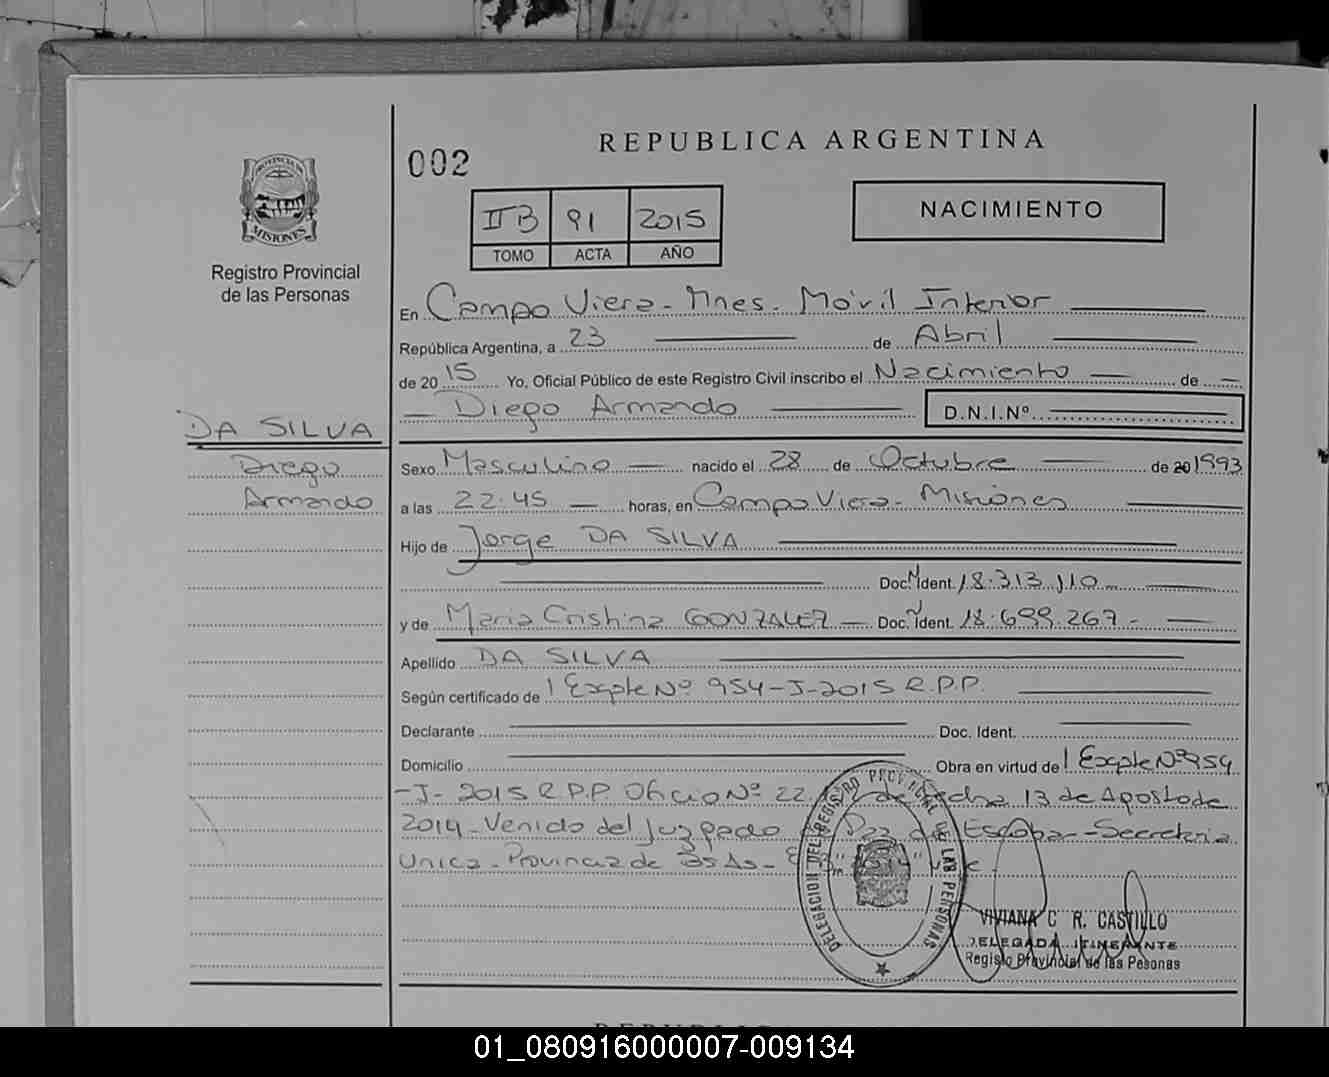 REPUBLICA ARGENTINA
002
PROVINCIA DE
MISIONES
Registro Provincial
de las Personas
II B 91 2015
TOMO ACTA AÑO
NACIMIENTO
En Campo Viera - Mnes. Móvil Interior
República Argentina, a 23 de Abril
de 2015 Yo, Oficial Público de este Registro Civil inscribo el Nacimiento de
Diego Armando D.N.I.Nº
DA SILVA
Diego
Armando
Sexo Masculino nacido el 28 de Octubre de 20 1993
a las 22:45 horas, en Campo Viera - Misiones
Hijo de Jorge DA SILVA
Doc. Ident. 18.313.110
y de Maria Cristina GONZALEZ Doc. Ident. 18.699.267 -
Apellido DA SILVA
Según certificado de Expte Nº 954-J-2015 R.P.P.
Declarante Doc. Ident.
Domicilio Obra en virtud de Expte Nº 954
-J- 2015 R.P.P. Oficio Nº 22 de fecha 13 de Agosto de
2014 - Venido del Juzgado de Paz de Escobar - Secretaria
Unica - Provincia de Bs As -
DELEGACION DEL REGISTRO PROVINCIAL DE LAS PERSONAS
VIVIANA C R. CASTILLO
DELEGADA ITINERANTE
Registo Provincial de las Pesonas
01_080916000007-009134